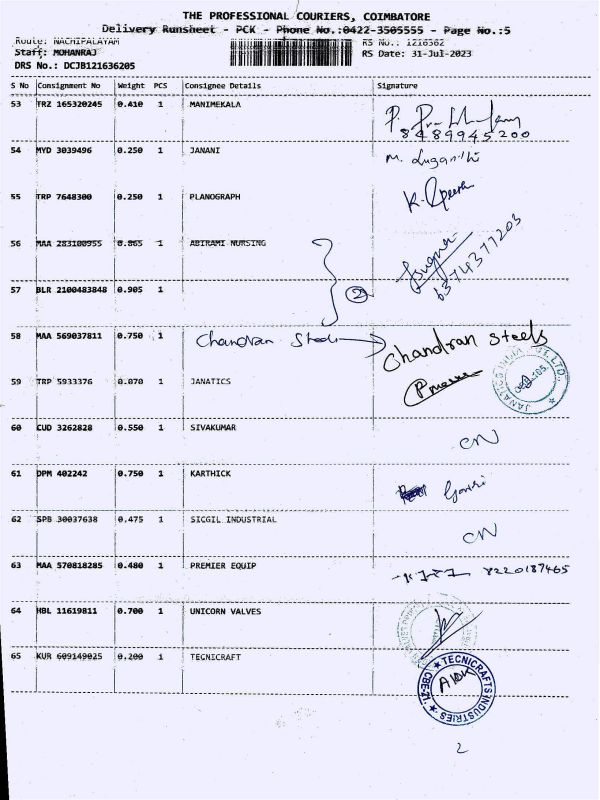 THE PROFESSIONAL COURIERS, COIMBATORE
Delivery Runsheet - PCK - Phone No.:0422-3505555 - Page No.:5
Route: NACHIPALAYAM RS No.: 1216362
Staff: MOHANRAJ RS Date: 31-Jul-2023
DRS No.: DCJB121636205
S No Consignment No Weight PCS Consignee Details Signature
53 TRZ 165320245 0.410 1 MANIMEKALA
8489945200
54 MYD 3039496 0.250 1 JANANI M.
55 TRP 7648300 0.250 1 PLANOGRAPH K.
56 MAA 283100955 0.865 1 ABIRAMI NURSING
6374377203
57 BLR 2100483848 0.905 1 2
58 MAA 569037811 0.750 1 Chandran Steels Chandran Steels
59 TRP 5933376 0.070 1 JANATICS JANATICS INDIA PVT. LTD.
60 CUD 3262828 0.550 1 SIVAKUMAR CN
61 DPM 402242 0.750 1 KARTHICK Gowri
62 SPB 30037638 0.475 1 SICGIL INDUSTRIAL CN
63 MAA 570818285 0.480 1 PREMIER EQUIP 8220187465
64 HBL 11619811 0.700 1 UNICORN VALVES
65 KUR 609149025 0.200 1 TECNICRAFT TECNICRAFTS INDUSTRIES CBE-21
2